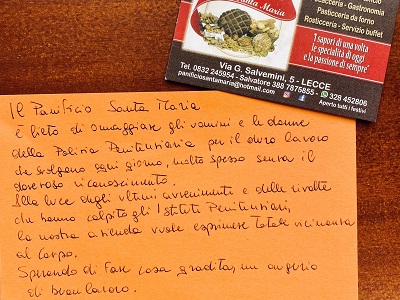 Santa Maria
Focacceria - Gastronomia
Pasticceria da forno
Rosticceria - Servizio buffet
"I sapori di una volta
le specialità di oggi
e la passione di sempre"
Via G. Salvemini, 5 - LECCE
Tel. 0832 245954 - Salvatore 388 7875855 - 328 452806
panificiosantamaria@hotmail.com
Aperto tutti i festivi
Il Panificio Santa Maria
è lieto di omaggiare gli uomini e le donne
della Polizia Penitenziaria per il duro lavoro
che svolgono ogni giorno, molto spesso senza il
doveroso riconoscimento.
Alla luce degli ultimi avvenimenti e delle rivolte
che hanno colpito gli Istituti Penitenziari,
la nostra azienda vuole esprimere totale vicinanza
al Corpo.
Sperando di fare cosa gradita, un augurio
di buon lavoro.